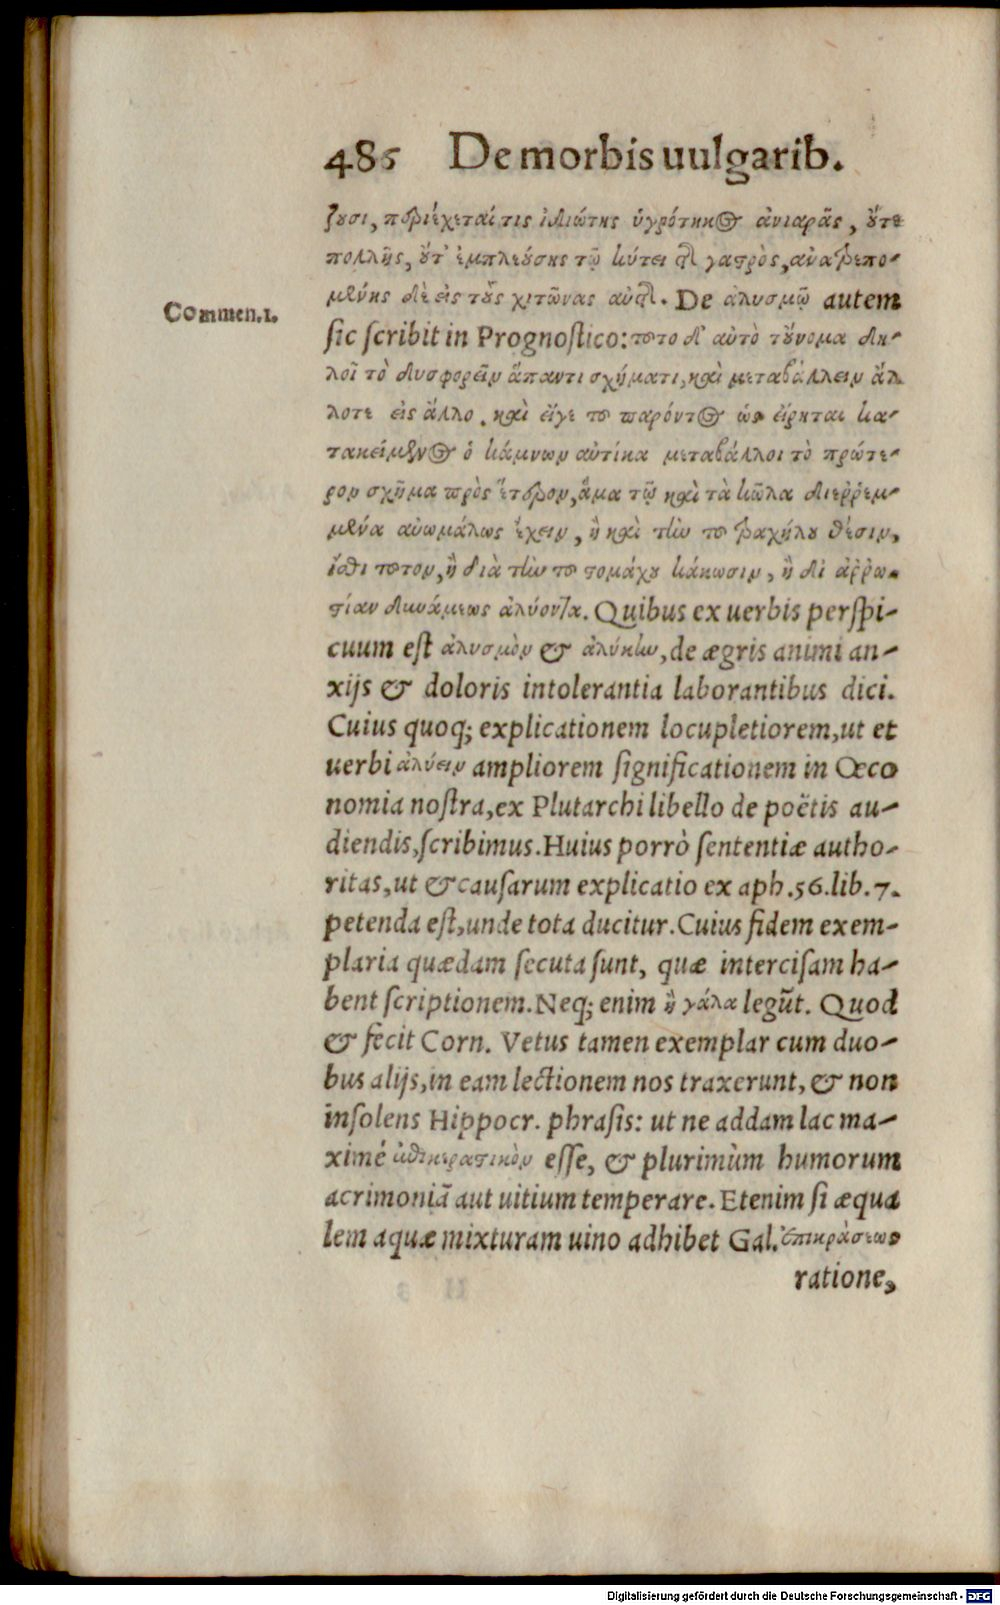 486 De morbis uulgarib.
ζουσι, περιέχεταί τις ἰδιώτης ὑγρότητος ἀνιαρᾶς, οὔτε
πολλῆς, οὔτ' ἐμπλεούσης τῷ κύτει τῆς γαστρὸς, ἀναῤῥεπο-
μένης δὲ εἰς τοὺς χιτῶνας αὐτῆς. De ἀλυσμῷ autem
Commen.1.
sic scribit in Prognostico: τοῦτο δ' αὐτὸ τοὔνομα δη-
λοῖ τὸ δυσφορεῖν ἅπαντι σχήματι, καὶ μεταβάλλειν ἄλ
λοτε εἰς ἄλλο. καὶ εἴγε τοῦ παρόντος ὡς εἴρηται κα-
τακείμενος ὁ κάμνων αὐτίκα μεταβάλλοι τὸ πρώτε-
ρον σχῆμα πρὸς ἕτερον, ἅμα τῷ καὶ τὰ κῶλα διερῥιμ-
μένα ἀνωμάλως ἔχειν, ἢ καὶ τὴν τοῦ τραχήλου θέσιν,
ἴσθι τοῦτον, ἢ διὰ τὴν τοῦ στομάχου κάκωσιν, ἢ δι' ἀῤῥω-
στίαν δυνάμεως ἀλύοντα. Quibus ex uerbis perspi-
cuum est ἀλυσμὸν & ἀλύκην, de ægris animi an-
xijs & doloris intolerantia laborantibus dici.
Cuius quoq; explicationem locupletiorem, ut et
uerbi ἀλύειν ampliorem significationem in Œco
nomia nostra, ex Plutarchi libello de poëtis au-
diendis, scribimus. Huius porrò sententiæ autho-
ritas, ut & causarum explicatio ex aph. 56. lib. 7.
petenda est, unde tota ducitur. Cuius fidem exem-
plaria quædam secuta sunt, quæ intercisam ha-
bent scriptionem. Neq; enim ἢ γάλα legūt. Quod
& fecit Corn. Vetus tamen exemplar cum duo-
bus alijs, in eam lectionem nos traxerunt, & non
insolens Hippocr. phrasis: ut ne addam lac ma-
ximé esse, & plurimùm humorum
acrimoniā aut uitium temperare. Etenim si æqua
lem aquæ mixturam uino adhibet Gal. ἐπικράσεως
ratione,
Digitalisierung gefördert durch die Deutsche Forschungsgemeinschaft - DFG